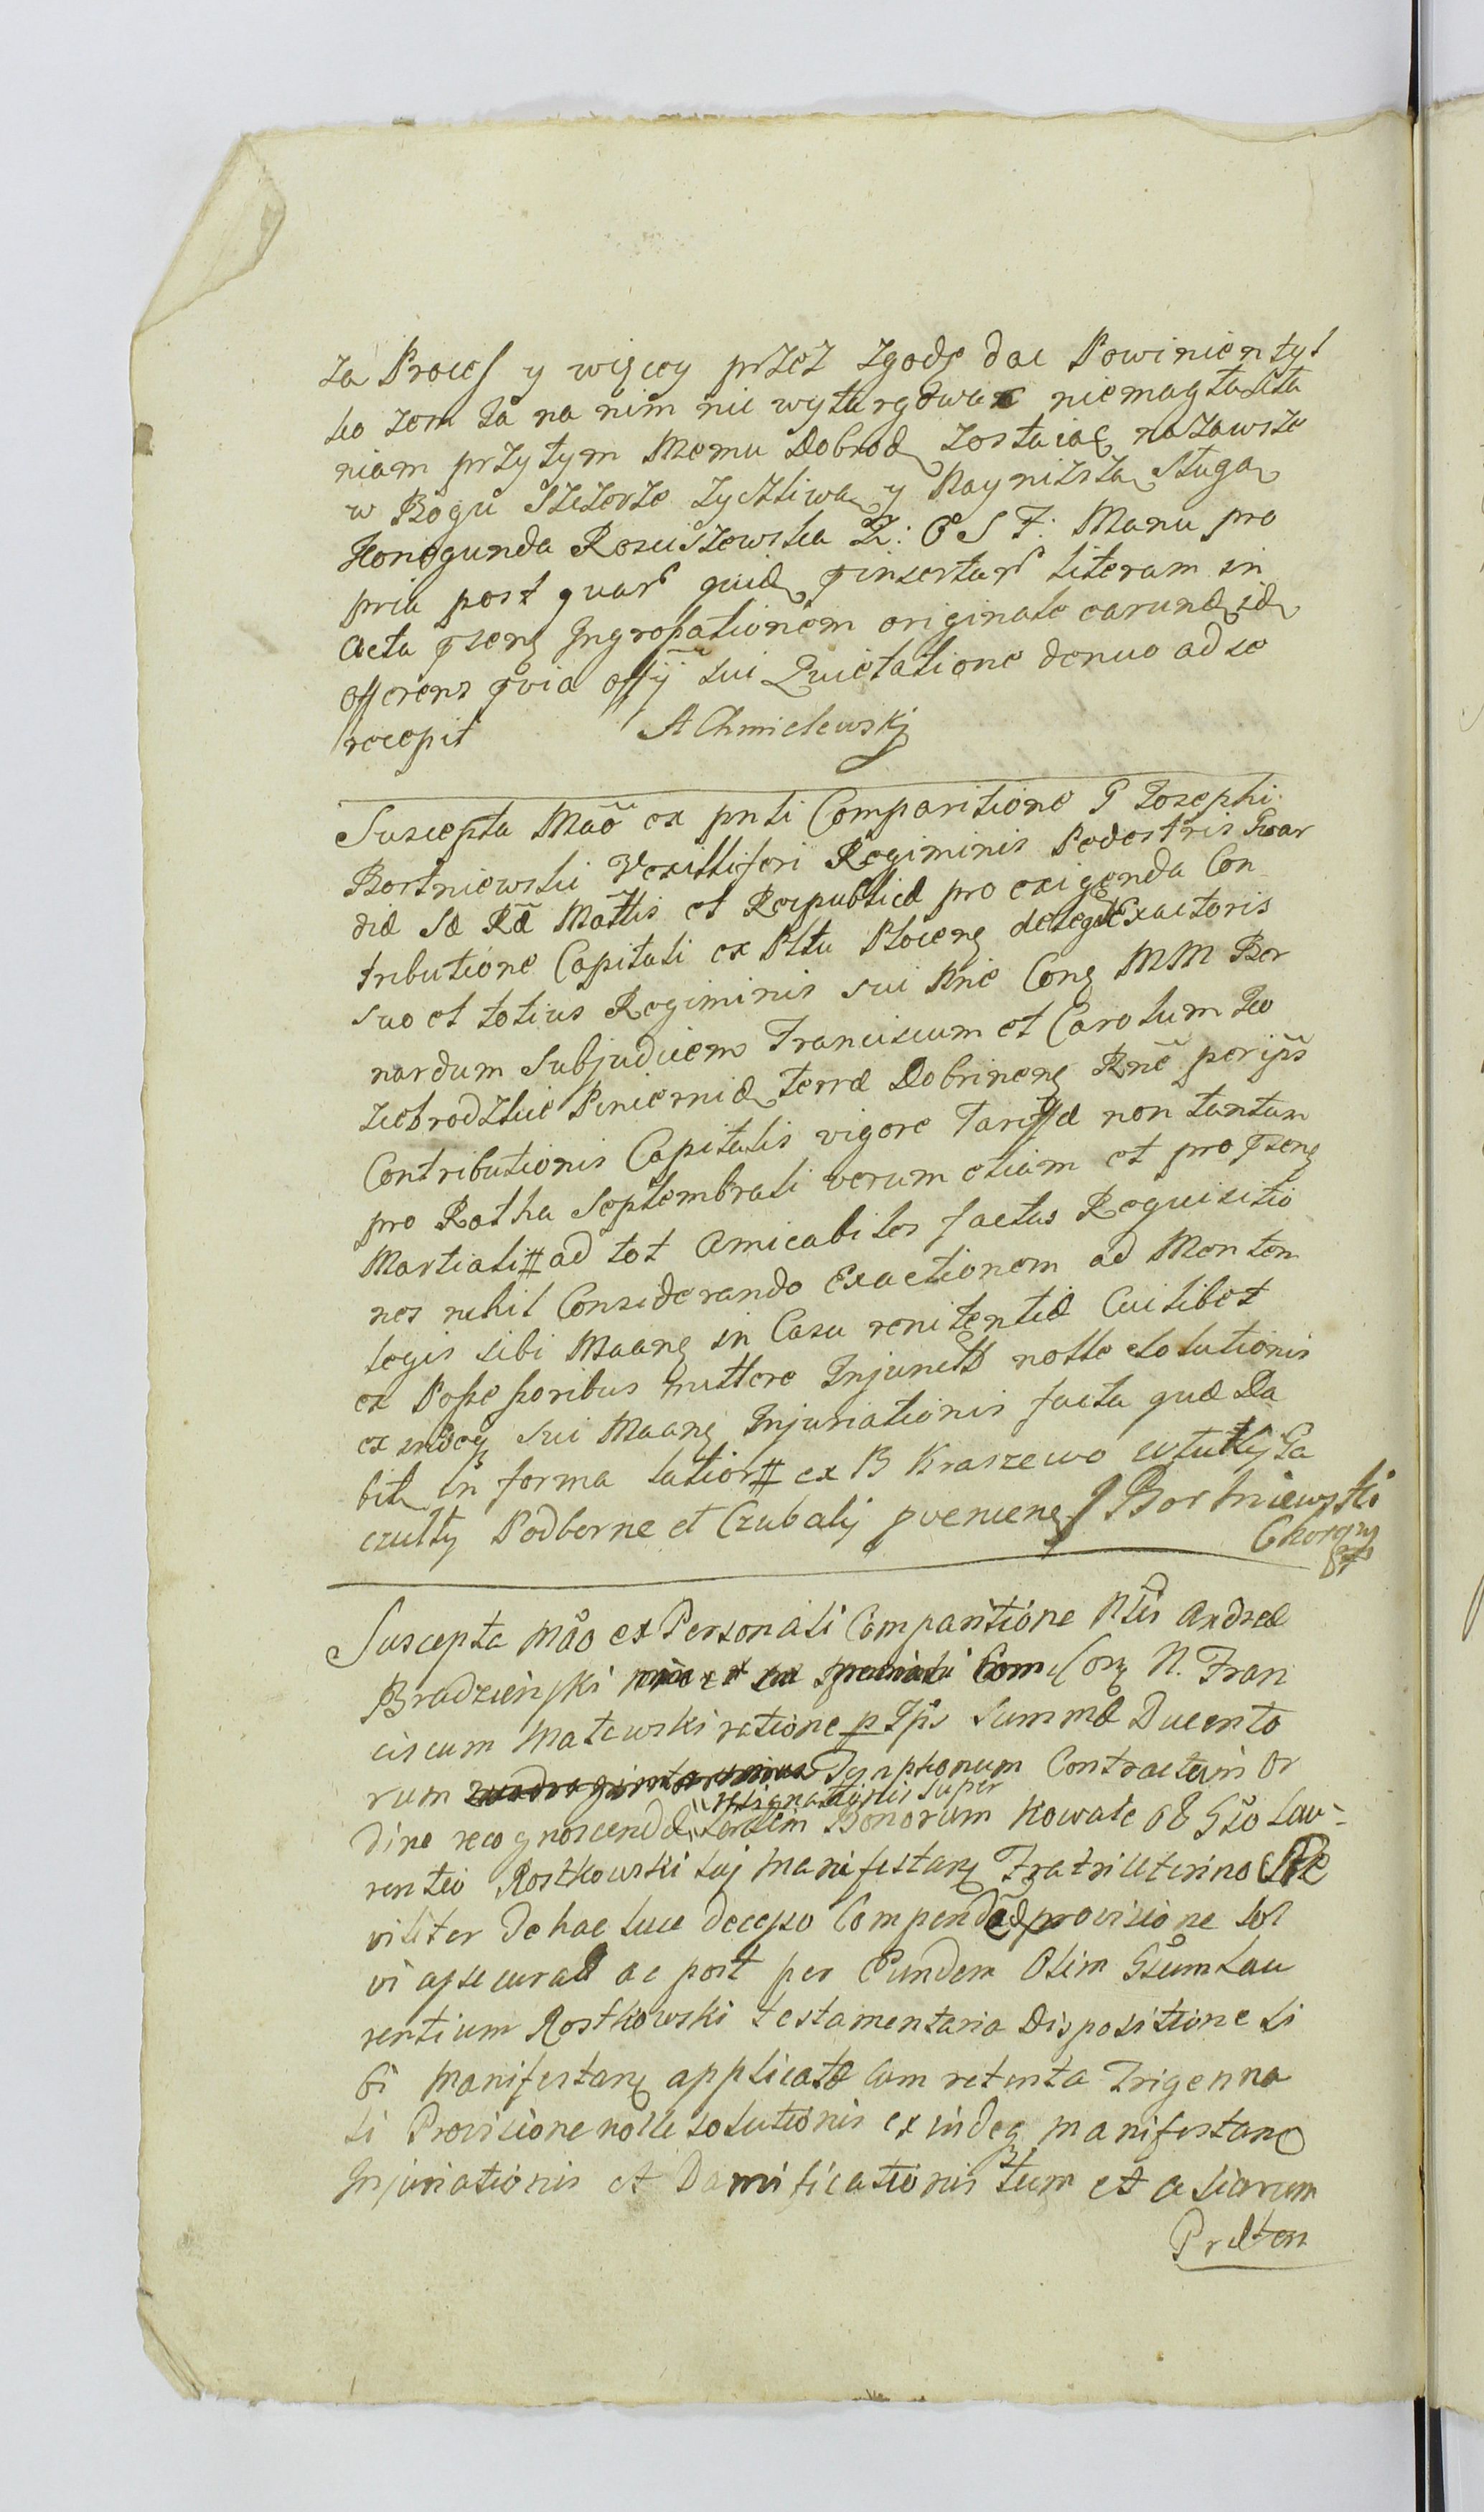 za Proces y więcey przez zgodę dac Powinien tyl
ko zem Ia na nim nic wytargowac niemogła kła
niam przytym Memu Dobrod zostaiąc nazawsze
w Bogu szczerze zyczliwą y Nayniższą Sługą
Konegunda Rosciszewska Z: O S F: Manu pro
pria post quar quid pinsertar literam in
Acta psens Ingrossationem originale earund id
offerens pvia offÿ sui Quietatione denuo ad se
recepit A Chmielewskj
Suscepta Mao ex pnti Comparitione G Josephi
Bortniewski Vexilliferi Regiminis Pedestris Gwar
diæ Sæ Ræ Mattis et Reipublicæ pro exigenda Con
tributione Capitali ex Pltu Plocens delegti Exactoris
suo et totius Regiminis sui Nne Cons MM Ber
nardum Subjudicem Franciscum et Carolum Ko
ziebrodzkie Pincernid terræ Dobrinens Rne per ips
Contributionis Capitalis vigore Tariffæ non tantum
pro Ratha Septembrali verum etiam et pro psens
Martiali # ad tot Amicabiles factas Requisitio
nes nihil Considerando Exactionem ad Montem
legis sibi Maans in Casu renitentiæ Cuilibet
ex Possessoribus mittere Injunctæ nolle solutionis
ex indeq sui Maans Injuriationis facta quæ Da
bit in forma latiori # ex B Kraszewo
czulty Podborne et Czubaly pveniens J Bortniewski
Chorązy
Suscepta Mao ex Personali Comparitione Nlis Andreæ
Bradzienski Cons N. Fran
ciscum Matowski ratione p Ips Summæ Ducento
rum Tynphonum Contractum Or
dine recognoscendæ resignationis super
Sortem Bonorum Kowale ob Gso Lau-
rentio Rostkowski suj manifestans Fratri Uterino
viliter de hac luce decesso Compendæ provisione sol
vi assecuratæ ac post per Eundem Olim Gsum Lau
rentium Rostkowski testamentaria Dispositione si
bi Manifestans applicatæ Cum retenta Trigenna
li Provisione nolle solutionis ex indeq manifestans
Injuriationis et Damificationis tum et aliarum
Præten